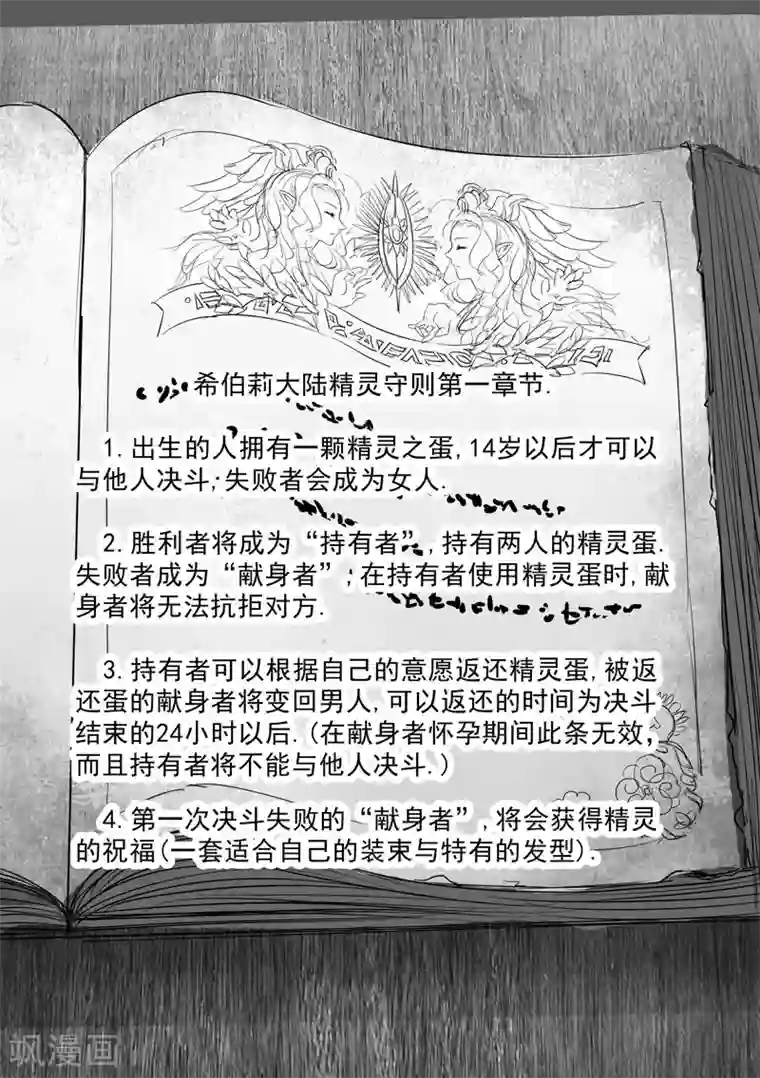 希伯莉大陆精灵守则第一章节.
1. 出生的人拥有一颗精灵之蛋,14岁以后才可以
与他人决斗,失败者会成为女人.
2. 胜利者将成为“持有者”,持有两人的精灵蛋.
失败者成为“献身者”,在持有者使用精灵蛋时,献
身者将无法抗拒对方.
3. 持有者可以根据自己的意愿返还精灵蛋,被返
还蛋的献身者将变回男人,可以返还的时间为决斗
结束的24小时以后.(在献身者怀孕期间此条无效,
而且持有者将不能与他人决斗.)
4. 第一次决斗失败的“献身者”,将会获得精灵
的祝福(一套适合自己的装束与特有的发型).
飒漫画